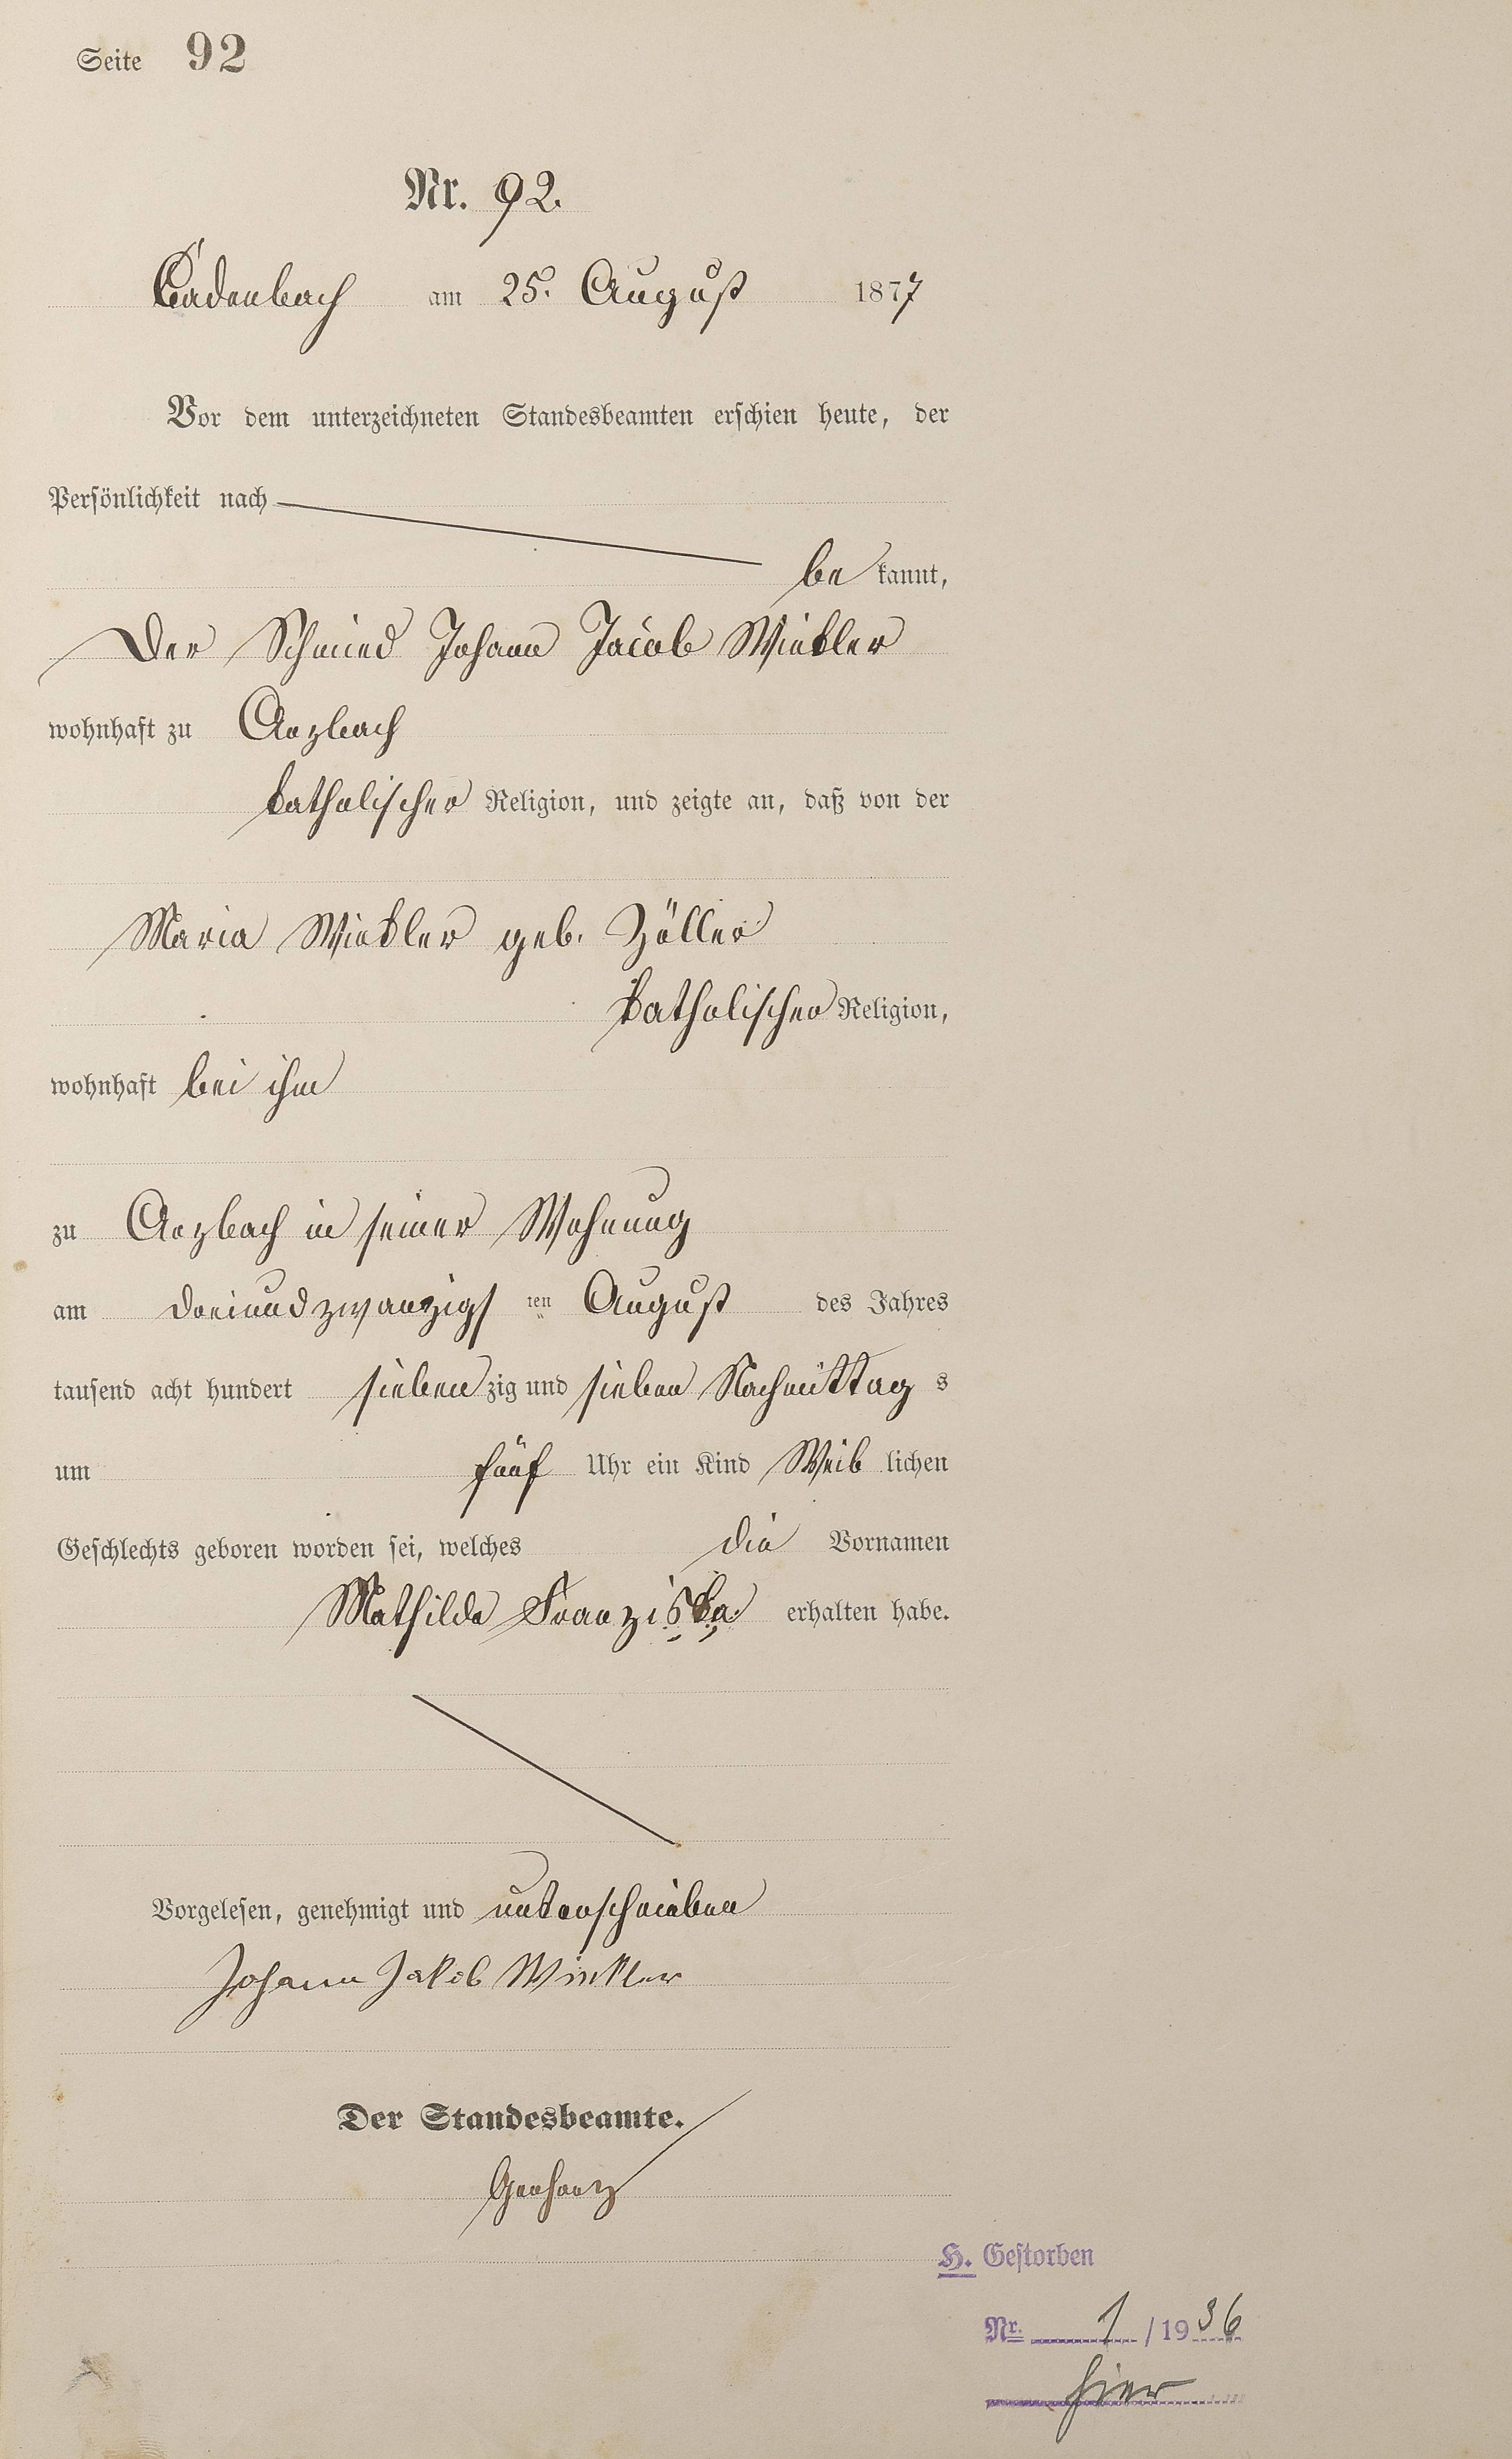 Seite 92
Nr. 92.
Cadenbach am 25. August 1877
Vor dem unterzeichneten Standesbeamten erschien heute, der
Persönlichkeit nach
be kannt,
Der Schmied Johann Jacob Winkler
wohnhaft zu Arzbach
katholischer Religion, und zeigte an, daß von der
Maria Winkler geb. Zöller
katholischer Religion,
wohnhaft bei ihm
zu Arzbach in seiner Wohnung
am dreiundzwanzigs ten August des Jahres
tausend acht hundert sieben zig und sieben Nachmittag s
um fünf Uhr ein Kind Weib lichen
Geschlechts geboren worden sei, welches die Vornamen
Mathilde Franziska erhalten habe.
Vorgelesen, genehmigt und unterschrieben
Johann Jakob Winkler
Der Standesbeamte.
H. Gestorben
Nr. 1 / 1936
hier